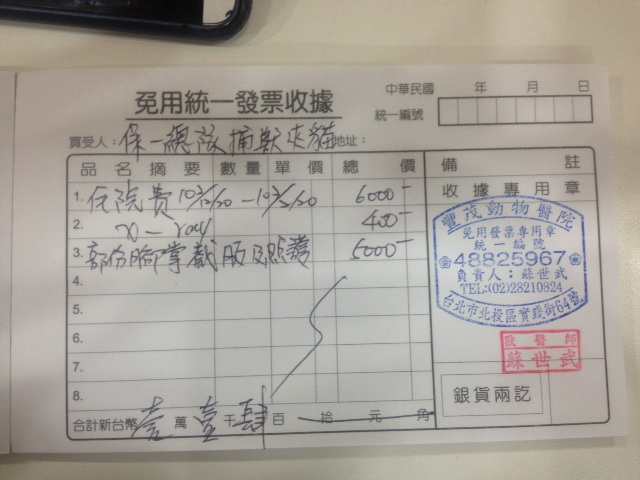 免用統一發票收據
中華民國 年 月 日
統一編號
買受人：保一總隊捕獸夾貓 地址：
品名摘要 數量 單價 總價 備註
1. 住院費 6000-
收據專用章
2. x-ray 400-
3. 部份腳掌截肢及照護 5000-
4.
5.
6.
7.
8.
合計新台幣 壹萬 壹千 肆百 拾 元 角
豐茂動物醫院
免用發票專用章
統一編號
48825967
負責人：蘇世武
TEL:(02)28210824
台北市北投區實踐街64號
獸醫師
蘇世武
銀貨兩訖